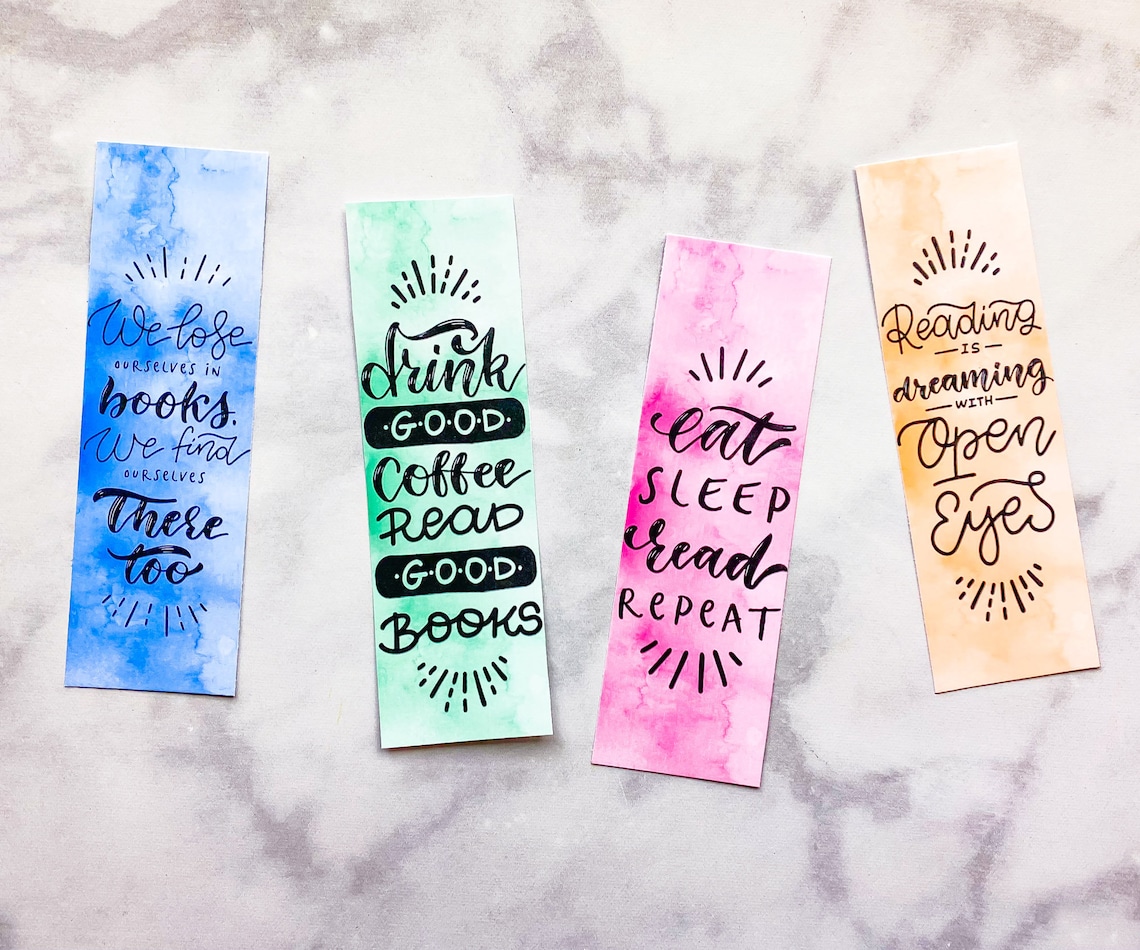 We lose
OURSELVES IN
books.
We find
OURSELVES
There
too
drink
·G·O·O·D·
Coffee
Read
·G·O·O·D·
Books
eat
SLEEP
read
REPEAT
Reading
—IS—
dreaming
—WITH—
Open
Eyes